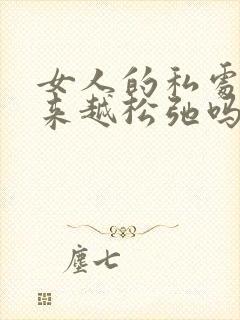 女人的私需
来越松弛吗
塵七